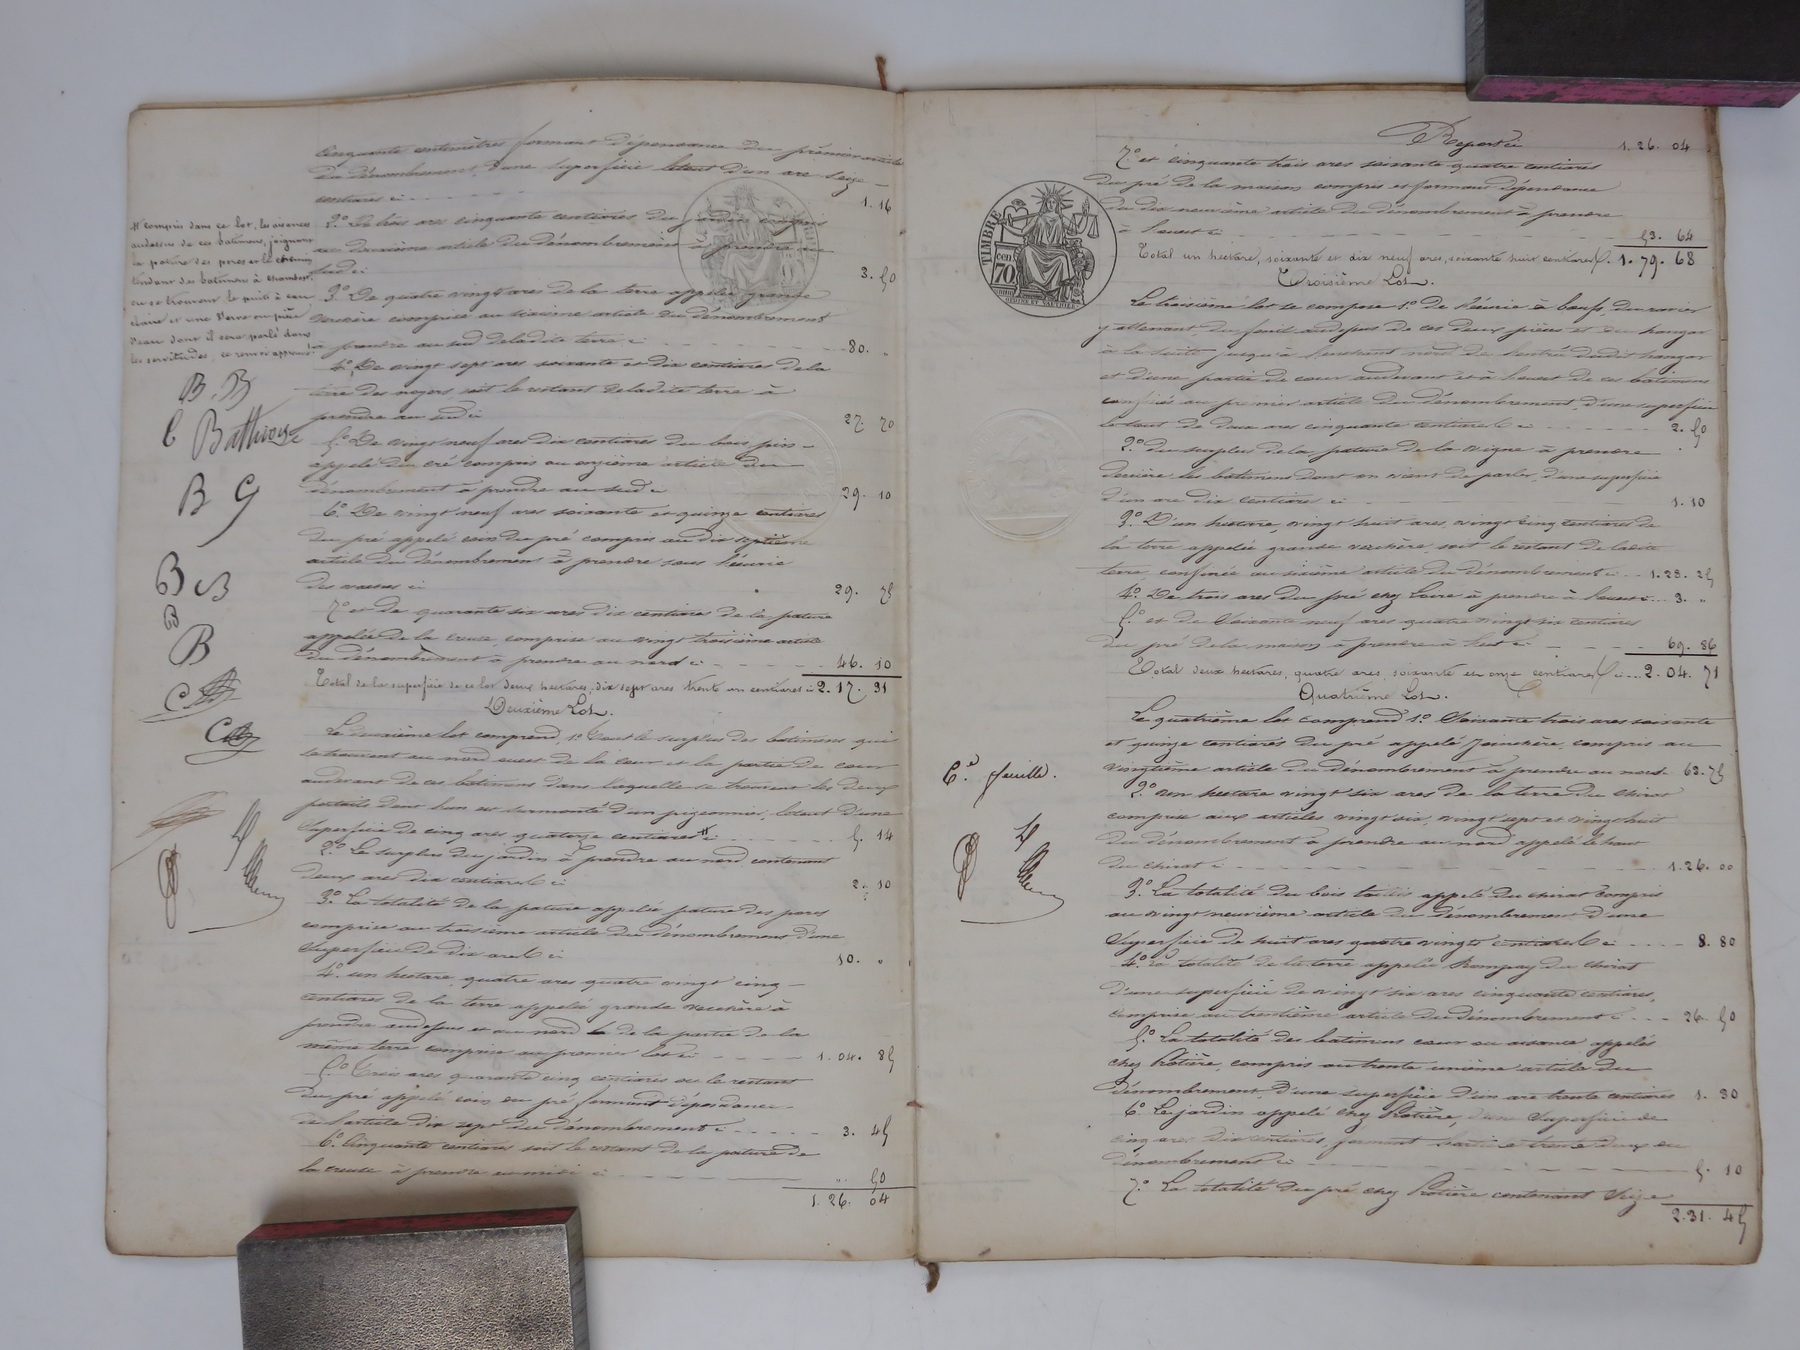 cinquante centimètres formant dépendance du premier article
du dénombrement, d'une superficie totale d'un are seize
centiares ci 1. 16
2° De trois ares cinquante centiares du jardin compris
au deuxième article du dénombrement à prendre au
sud ci 3. 50
3° De quatre vingt ares de la terre appelée grande
verchère comprise au sixième article du dénombrement
à prendre au sud de ladite terre ci 80. "
4° De vingt sept ares soixante et dix centiares de la
terre des noyers, soit le restant de ladite terre à
prendre au sud ci 27. 70
5° De vingt neuf ares dix centiares du bois pins
appelé du cré compris au onzième article du
dénombrement à prendre au sud ci 29. 10
6° De vingt neuf ares soixante et quinze centiares
du pré appelé coin du pré compris au dix septième
article du dénombrement à prendre sous l'écurie
des vaches ci 29. 75
7° et de quarante six ares dix centiares de la pature
appelée de la creuse, comprise au vingt troisième article
du dénombrement à prendre au nord ci 46. 10
Total de la superficie de ce lot deux hectares, dix sept ares trente un centiares ci 2. 17. 31
Deuxième Lot.
Le deuxième lot comprend, 1° Tout le surplus des batiments qui
se trouvent au nord ouest de la cour et la partie de cour
audevant de ces batimens dans laquelle se trouvent les deux
portails dont l'un est surmonté d'un pigeonnier, le tout d'une
superficie de cinq ares quatorze centiares # ci 5. 14
2° Le surplus du jardin à prendre au nord contenant
deux ares dix centiares ci 2. 10
3° La totalité de la pature appelée pature des porcs
comprise au troisième article du dénombrement d'une
superficie de dix ares ci 10. "
4° un hectare, quatre ares quatre vingt cinq
centiares de la terre appelée grande verchère à
prendre audessus et au nord de la partie de la
même terre comprise au premier lot ci 1. 04. 85
5° Trois ares quarante cinq centiares ou le restant
du pré appelé coin du pré formant dépendance
de l'article dix sept du dénombrement ci 3. 45
6° Cinquante centiares soit le restant de la pature de
la creuse à prendre au midi ci ". 50
1. 26. 04
# compris dans ce lot, les aisances
audessus de ces batimens, joignant
la pature des porcs et le chemin
tendant des batimens à
où se trouvent le puits à eau
claire et une serve ou pièce
d'eau dont il sera parlé dans
les servitudes, ce renvoi approuvé
B. B
C Bathiony
B G
B B
B
B
C
C
Report ci 1. 26. 04
7° et cinquante trois ares soixante quatre centiares
du pré de la maison compris et formant dépendance
du dix neuvième article du dénombrement à prendre
à l'ouest ci 53. 64
Total un hectare, soixante et dix neuf ares, soixante huit centiares ci 1. 79. 68
Troisième Lot.
Le troisième lot se compose 1° De l'écurie à boeufs, du
y attenant du fenil audessus de ces deux pièces et du hangar
à la suite jusqu'à nord de l'entrée dudit hangar
et d'une partie de cour audevant et à l'ouest de ces batimens
confinés au premier article du dénombrement, d'une superficie
le tout de deux ares cinquante centiares ci 2. 50
2° du surplus de la pature de la vigne à prendre
derrière les batimens dont on vient de parler, d'une superficie
d'un are dix centiares ci 1. 10
3° D'un hectare, vingt huit ares, vingt cinq centiares de
la terre appelée grande verchère, soit le restant de ladite
terre, confinée au sixième article du dénombrement ci 1. 28. 25
4° De trois ares du pré chez Loire à prendre à l'ouest ci 3. "
5° et de Soixante neuf ares quatre vingt six centiares
du pré de la maison à prendre à l'est ci 69. 86
Total deux hectares, quatre ares, soixante et onze centiares ci 2. 04. 71
Quatrième Lot.
Le quatrième lot comprend 1° Soixante trois ares soixante
et quinze centiares du pré appelé Joinchère, compris au
vingtième article du dénombrement à prendre au nord 63. 75
2° un hectare vingt six ares de la terre du chirat
comprise aux articles vingt six, vingt sept et vingt huit
du dénombrement à prendre au nord appelé le haut
du chirat ci 1. 26. 00
3° La totalité du bois taillis appelé du chirat compris
au vingt neuvième article du dénombrement d'une
superficie de huit ares quatre vingts centiares ci 8. 80
4° La totalité de la terre appelée Rompay du chirat
d'une superficie de vingt six ares cinquante centiares,
comprise au trentième article du dénombrement ci 26. 50
5° La totalité des batimens cour ou aisance appelés
chez Rotière, compris au trente unième article du
dénombrement, d'une superficie d'un are trente centiares 1. 30
6° Le jardin appelé chez Rotière, d'une superficie de
cinq ares dix centiares, formant l'article trente deux du
dénombrement ci 5. 10
7° La totalité du pré chez Rotière contenant Seize
2. 31. 45
6.e feuille.
TIMBRE
70
cen